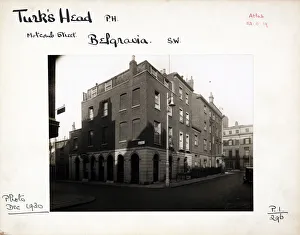 Turk's Head P.H.
Motcomb Street.
Belgravia. S.W.
Photo
Dec 1930
P.1
296